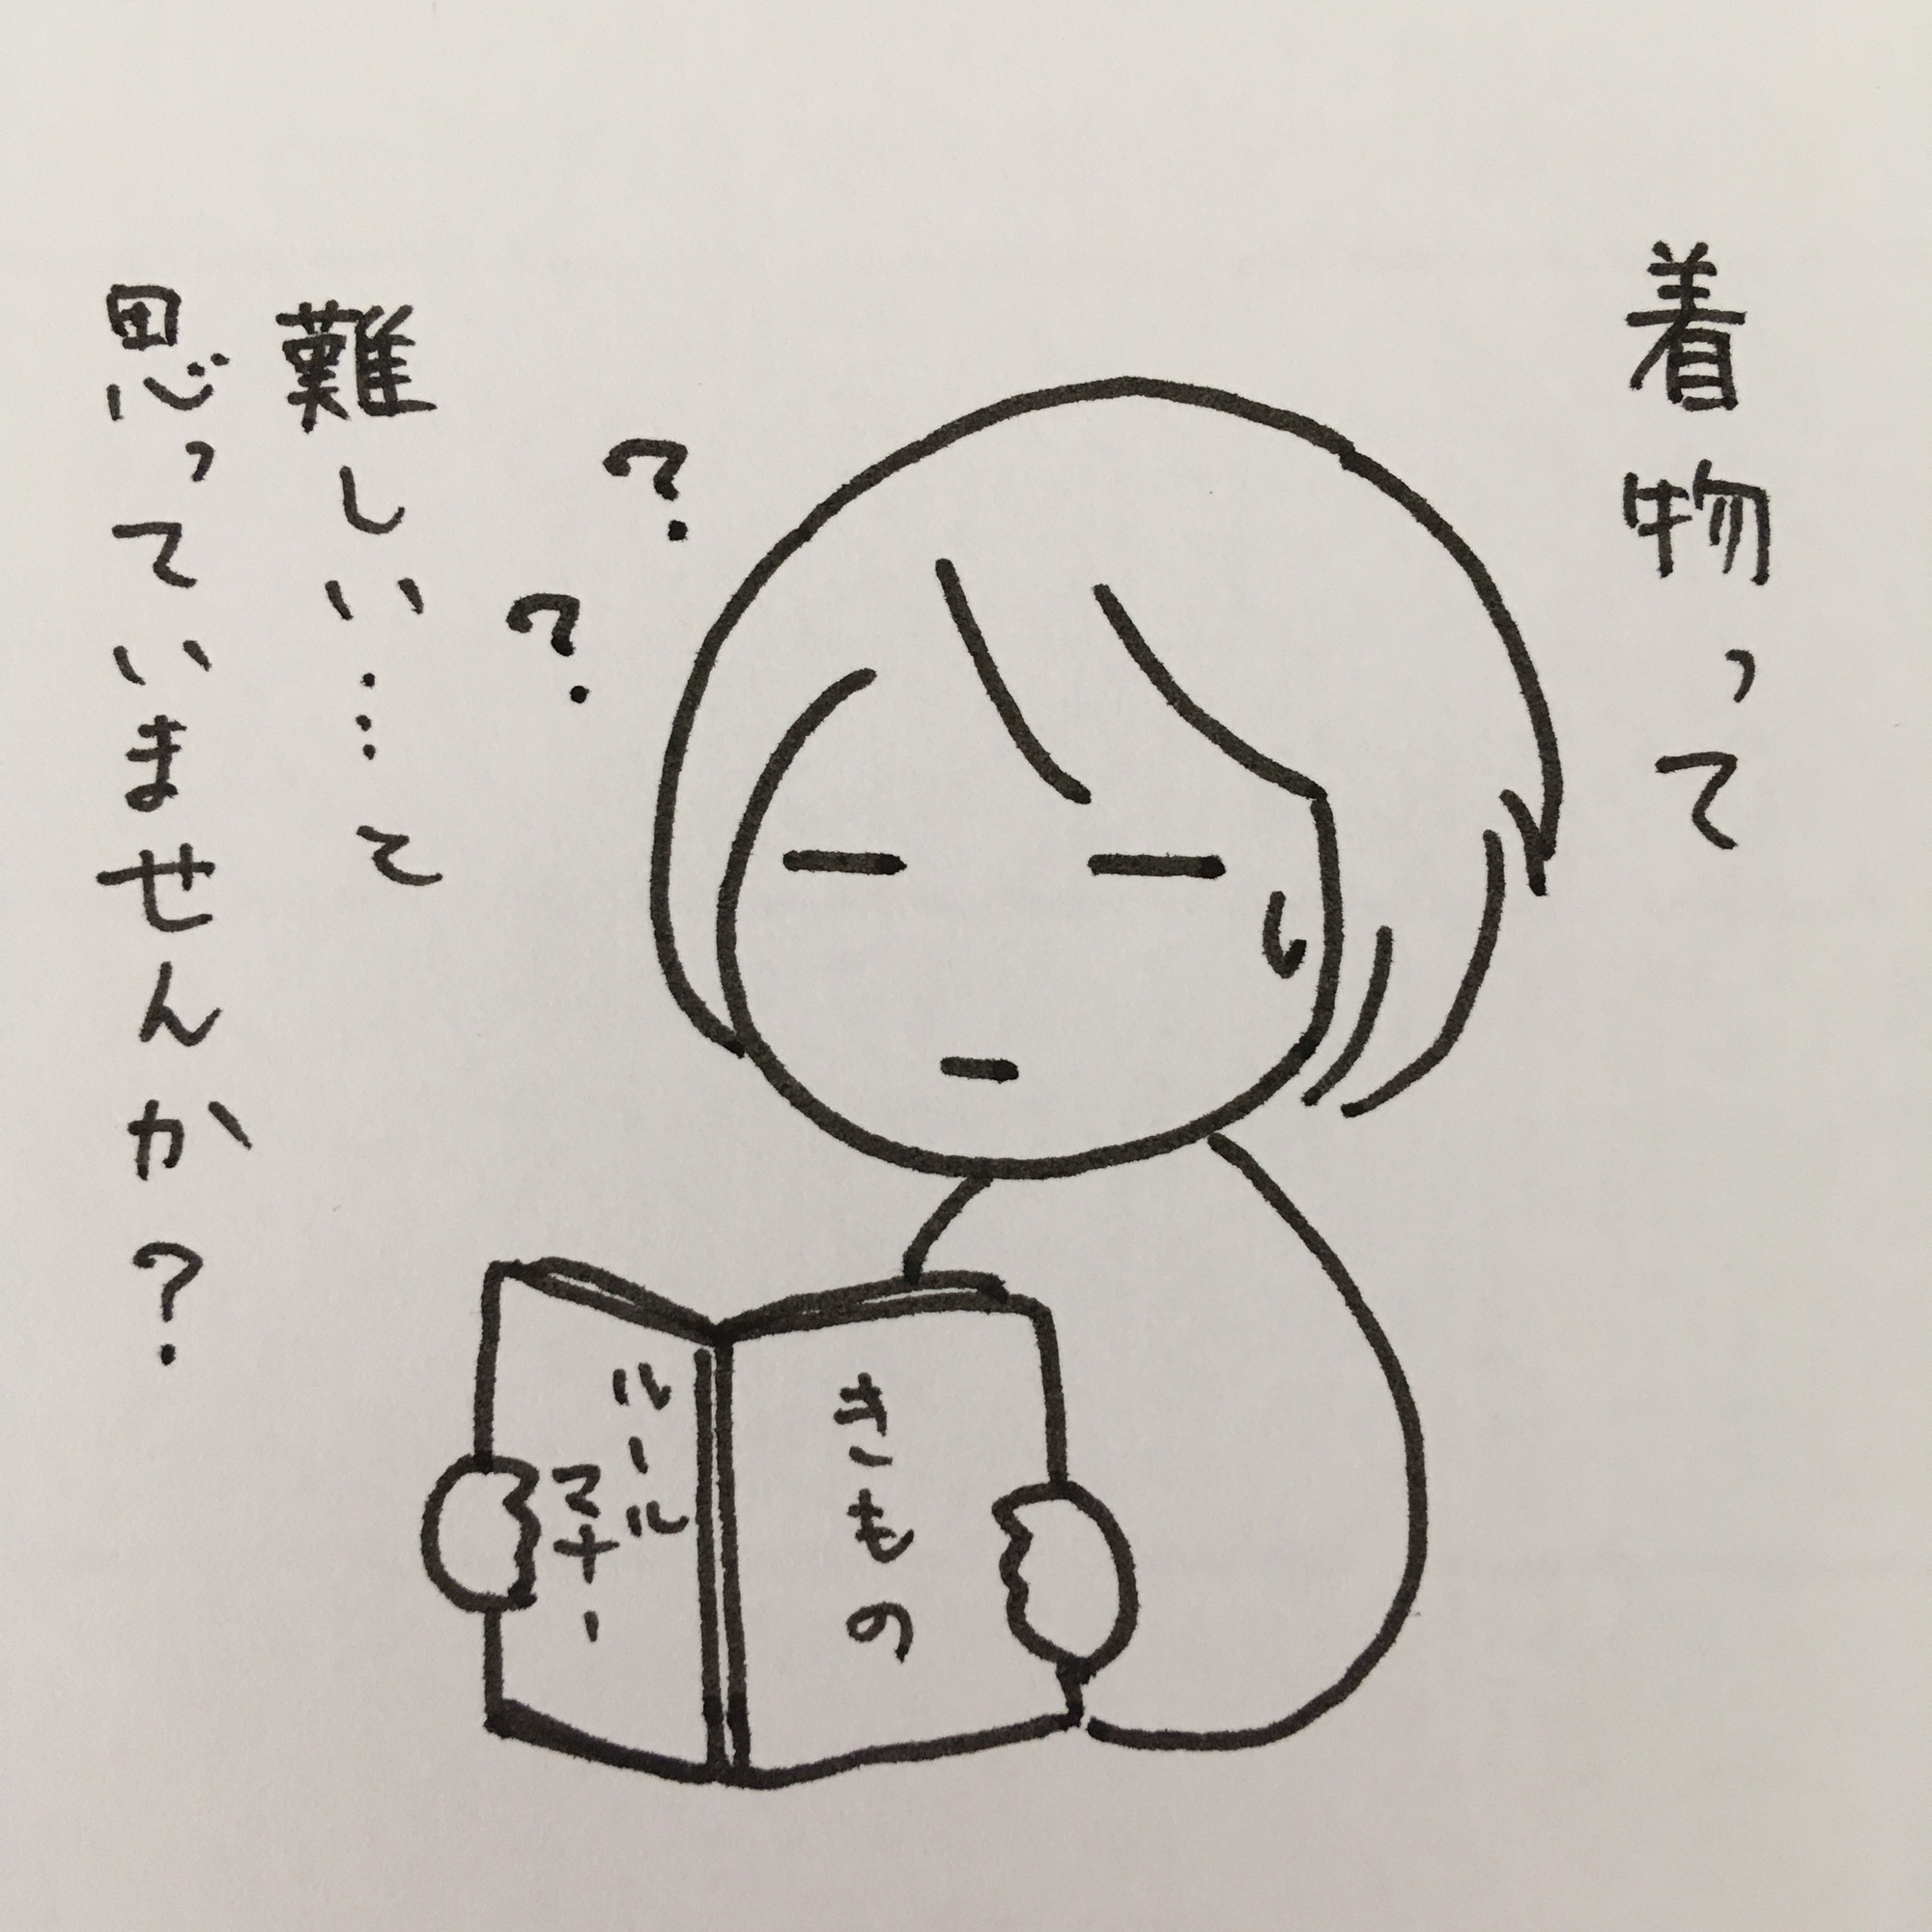 着物って
？
？
難しい…て
思っていませんか？
きもの
ルール
マナー